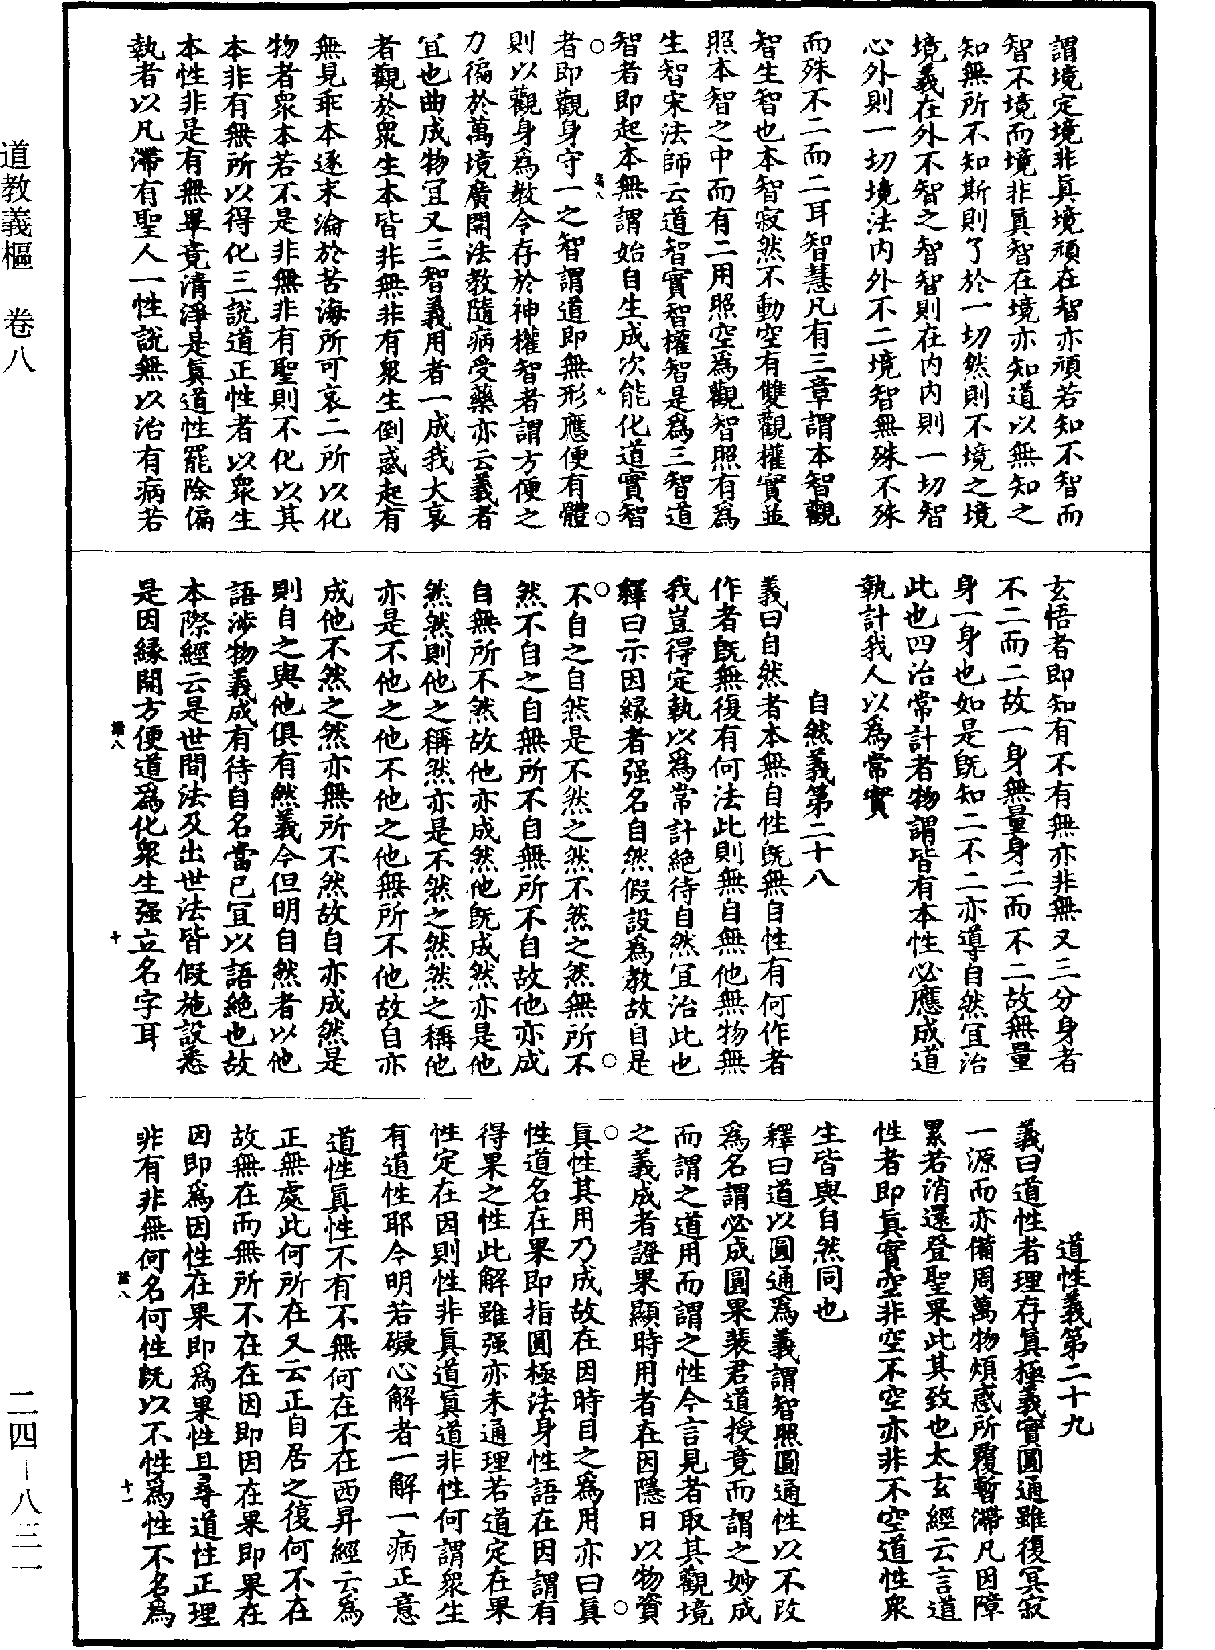 道教義樞　卷八
二四—八三一
謂境定境非真境頑在智亦頑若知不智而
智不境而境非真智在境亦知道以無知之
知無所不知斯則了於一切然則不境之境
境義在外不智之智智則在内内則一切智
心外則一切境法内外不二境智無殊不殊
而殊不二而二耳智慧凡有三章謂本智觀
智生智也本智寂然不動空有雙觀權實並
照本智之中而有二用照空為觀智照有為
生智宋法師云道智實智權智是為三智道
智者即起本無謂始自生成次能化道實智
者即觀身守一之智謂道即無形應便有體
則以觀身為教令存於神權智者謂方便之
力徧於萬境廣開法教隨病受藥亦云義者
宜也曲成物宜又三智義用者一成我大哀
者觀於衆生本皆非無非有衆生倒惑起有
無見乖本逐末淪於苦海所可哀二所以化
物者衆本若不是非無非有聖則不化以其
本非有無所以得化三説道正性者以衆生
本性非是有無畢竟清淨是真道性罷除偏
執者以凡滯有聖人一性説無以治有病若
玄悟者即知有不有無亦非無又三分身者
不二而二故一身無量身二而不二故無量
身一身也如是既知二不二亦導自然宜治
此也四治常計者物謂皆有本性必應成道
執計我人以為常實
自然義第二十八
義曰自然者本無自性既無自性有何作者
作者既無復有何法此則無自無他無物無
我豈得定執以為常計絶待自然宜治此也
釋曰示因緣者强名自然假設為教故自是
不自之自然是不然之然不然之然無所不
然不自之自無所不自無所不自故他亦成
自無所不然故他亦成然他既成然亦是他
然然則他之稱然亦是不然之然然之稱他
亦是不他之他不他之他無所不他故自亦
成他不然之然亦無所不然故自亦成然是
則自之與他俱有然義今但明自然者以他
語涉物義成有待自名當已宜以語絶也故
本際經云是世間法及出世法皆假施設悉
是因緣開方便道為化衆生强立名字耳
道性義第二十九
義曰道性者理存真極義實圓通雖復冥寂
一源而亦備周萬物煩惑所覆暫滯凡因障
累若消還登聖果此其致也太玄經云言道
性者即真實空非空不空亦非不空道性衆
生皆與自然同也
釋曰道以圓通為義謂智照圓通性以不改
為名謂必成圓果裴君道授竟而謂之妙成
而謂之道用而謂之性今言見者取其觀境
之義成者證果顯時用者在因隱日以物資
真性其用乃成故在因時目之為用亦曰真
性道名在果即指圓極法身性語在因謂有
得果之性此解雖强亦未通理若道定在果
性定在因則性非真道真道非性何謂衆生
有道性耶今明若礙心解者一解一病正意
道性真性不有不無何在不在西昇經云為
正無處此何所在又云正自居之復何不在
故無在而無所不在在因即因在果即果在
因即為因性在果即為果性且尋道性正理
非有非無何名何性既以不性為性不名為